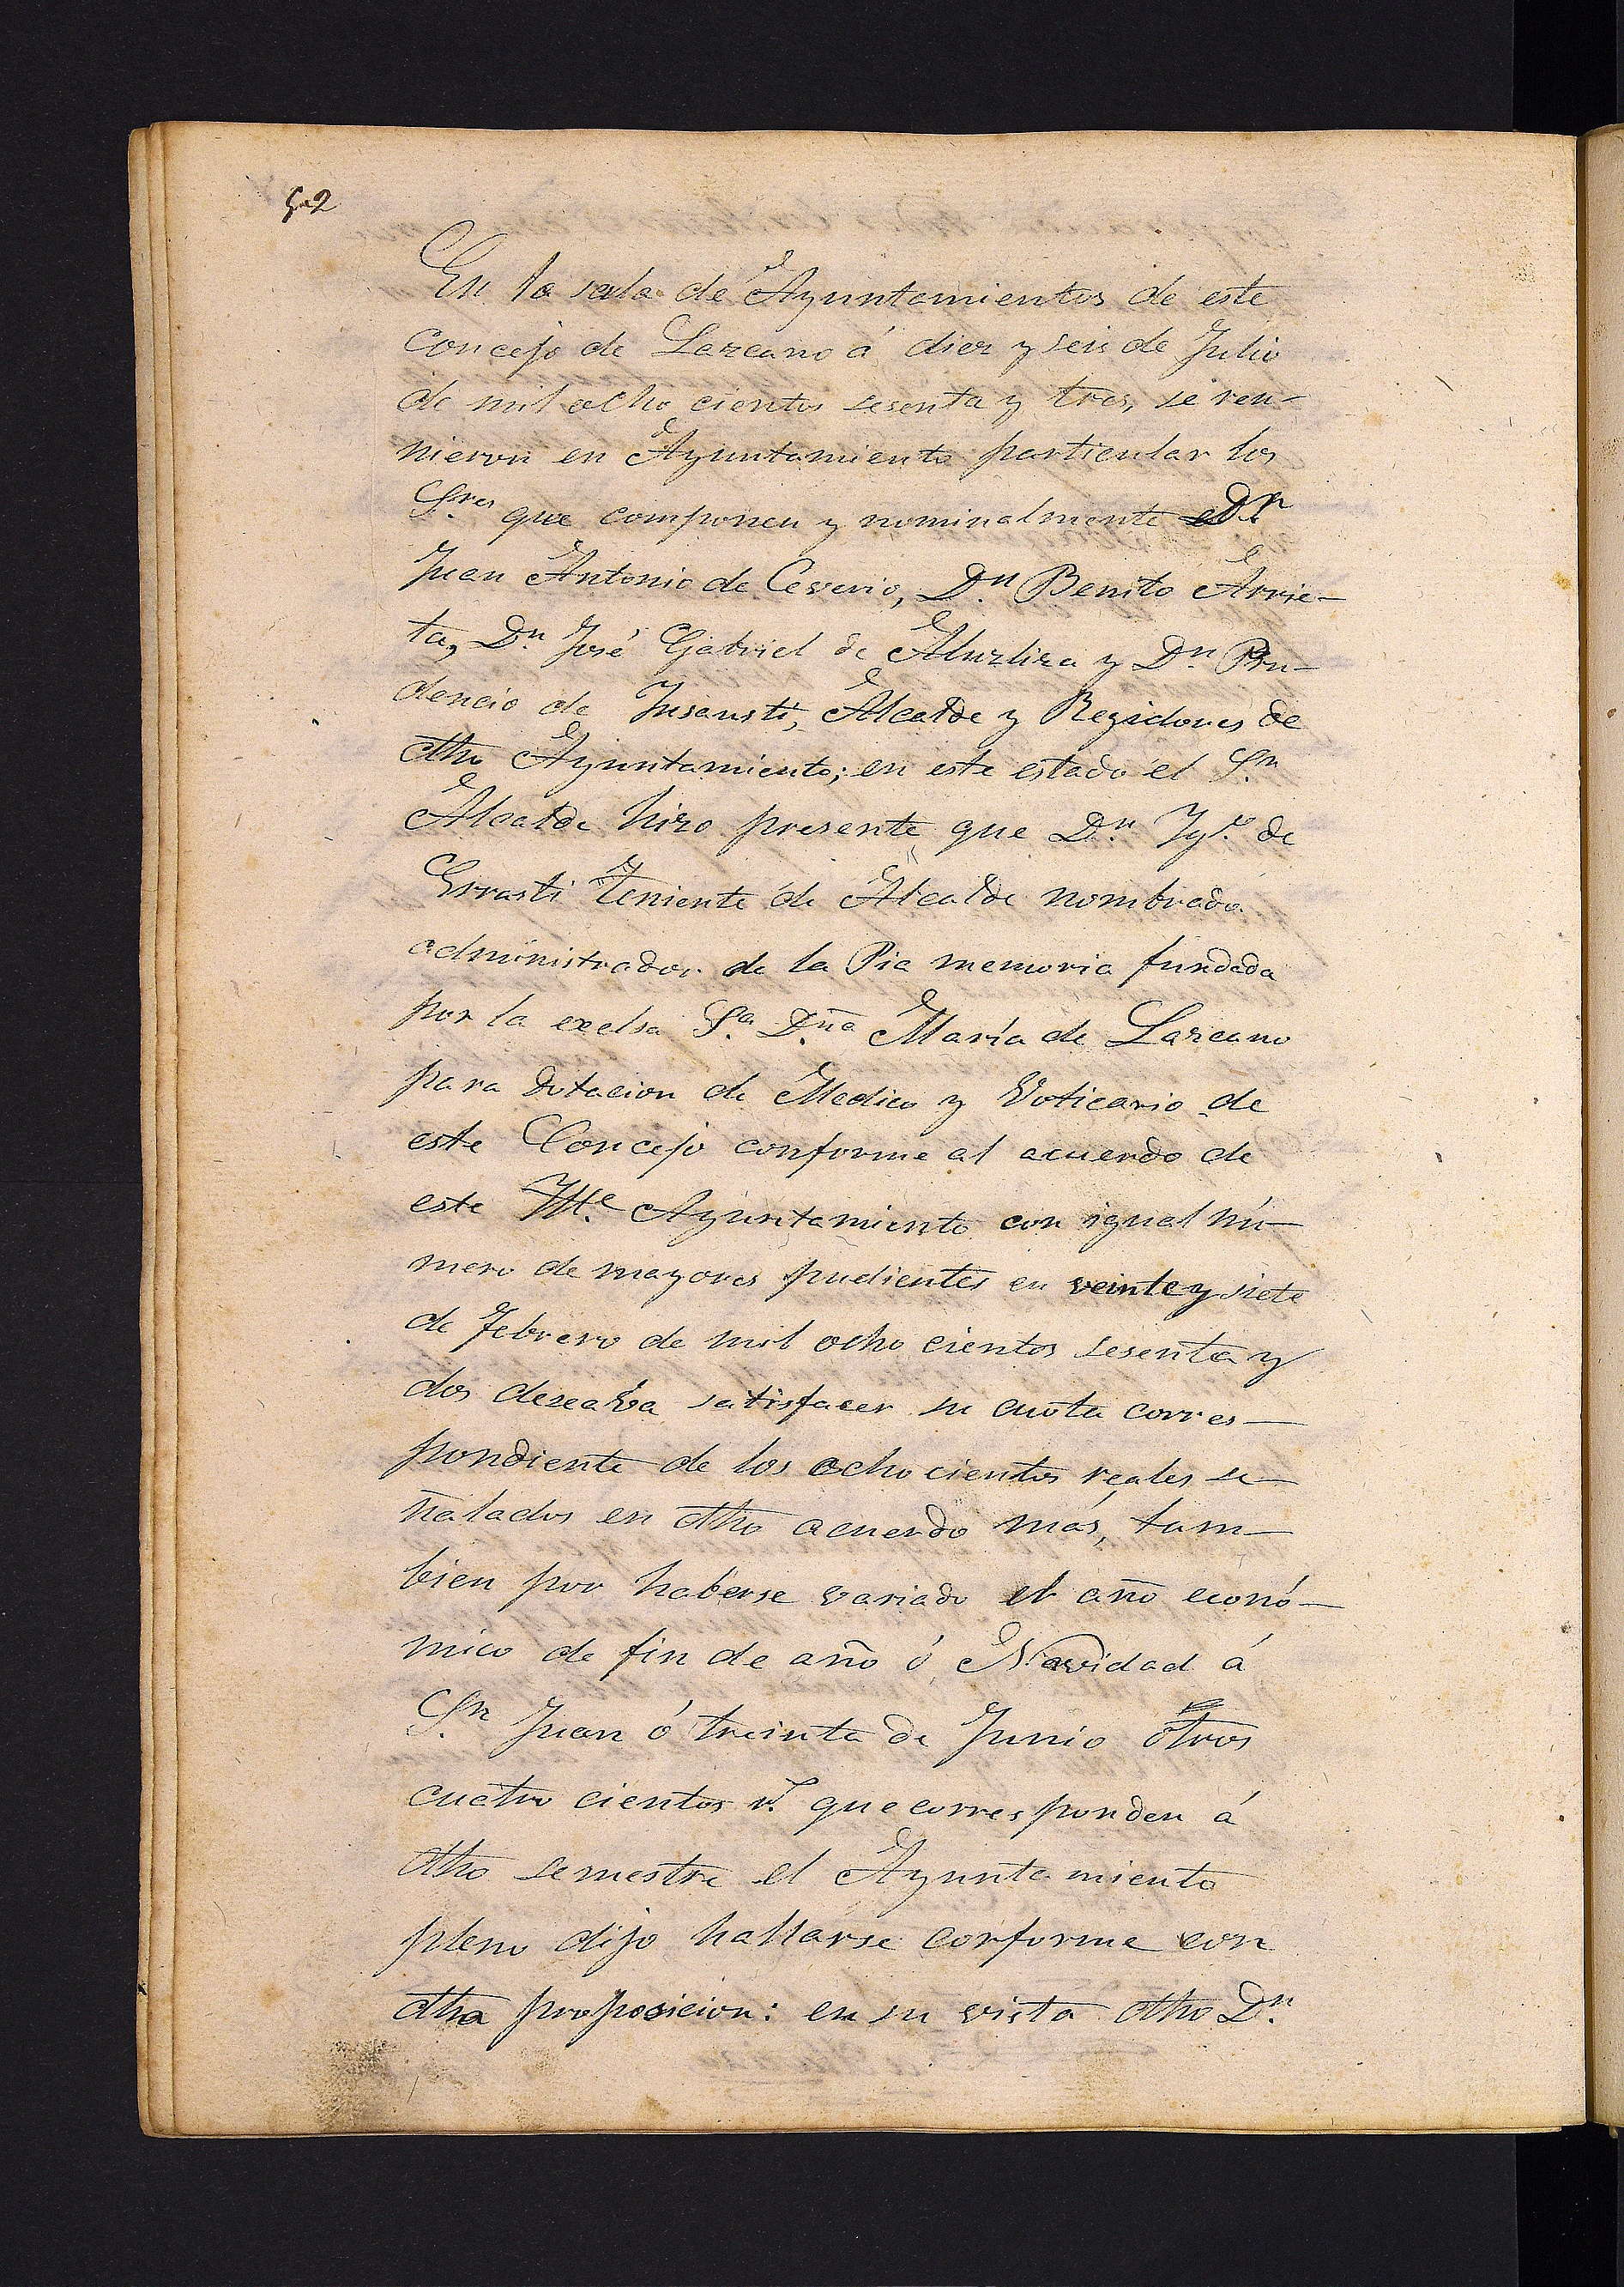 52
En la sala de Ayuntamientos de este
Concejo de Lazcano á diez y seis de Julio
de mil ocho cientos sesenta y tres, se reu-
nieron en Ayuntamiento particular los
S.res que componen y nominalmente D.n
Juan Antonio de Ceverio, D.n Benito Arrie-
ta, D.n José Gabriel de Aluzliza y D.n Pru-
dencio de Insausti, Alcalde y Regidores de
dho Ayuntamiento; en este estado el S.or
Alcalde hizo presente que D.n Ig.o de
Errasti Teniente de Alcalde nombrado
administrador de la Pia memoria fundada
por la excelsa S.a D.ña María de Lazcano
para dotacion de Medico y Voticario de
este Concejo conforme al acuerdo de
este Ille. Ayuntamiento con igual nú-
mero de mayores pudientes en veinte y siete
de Febrero de mil ocho cientos sesenta y
dos deseava satisfacer su cuota corres-
pondiente de los ocho cientos reales se-
ñalados en dho acuerdo más, tam-
bien por haberse variado el año econó-
mico de fin de año ó Navidad á
S.n Juan ó treinta de Junio otros
cuatro cientos r.s que corresponden á
dho semestre el Ayuntamiento
pleno dijo hallarse conforme con
dha proposicion: en su vista dho D.n